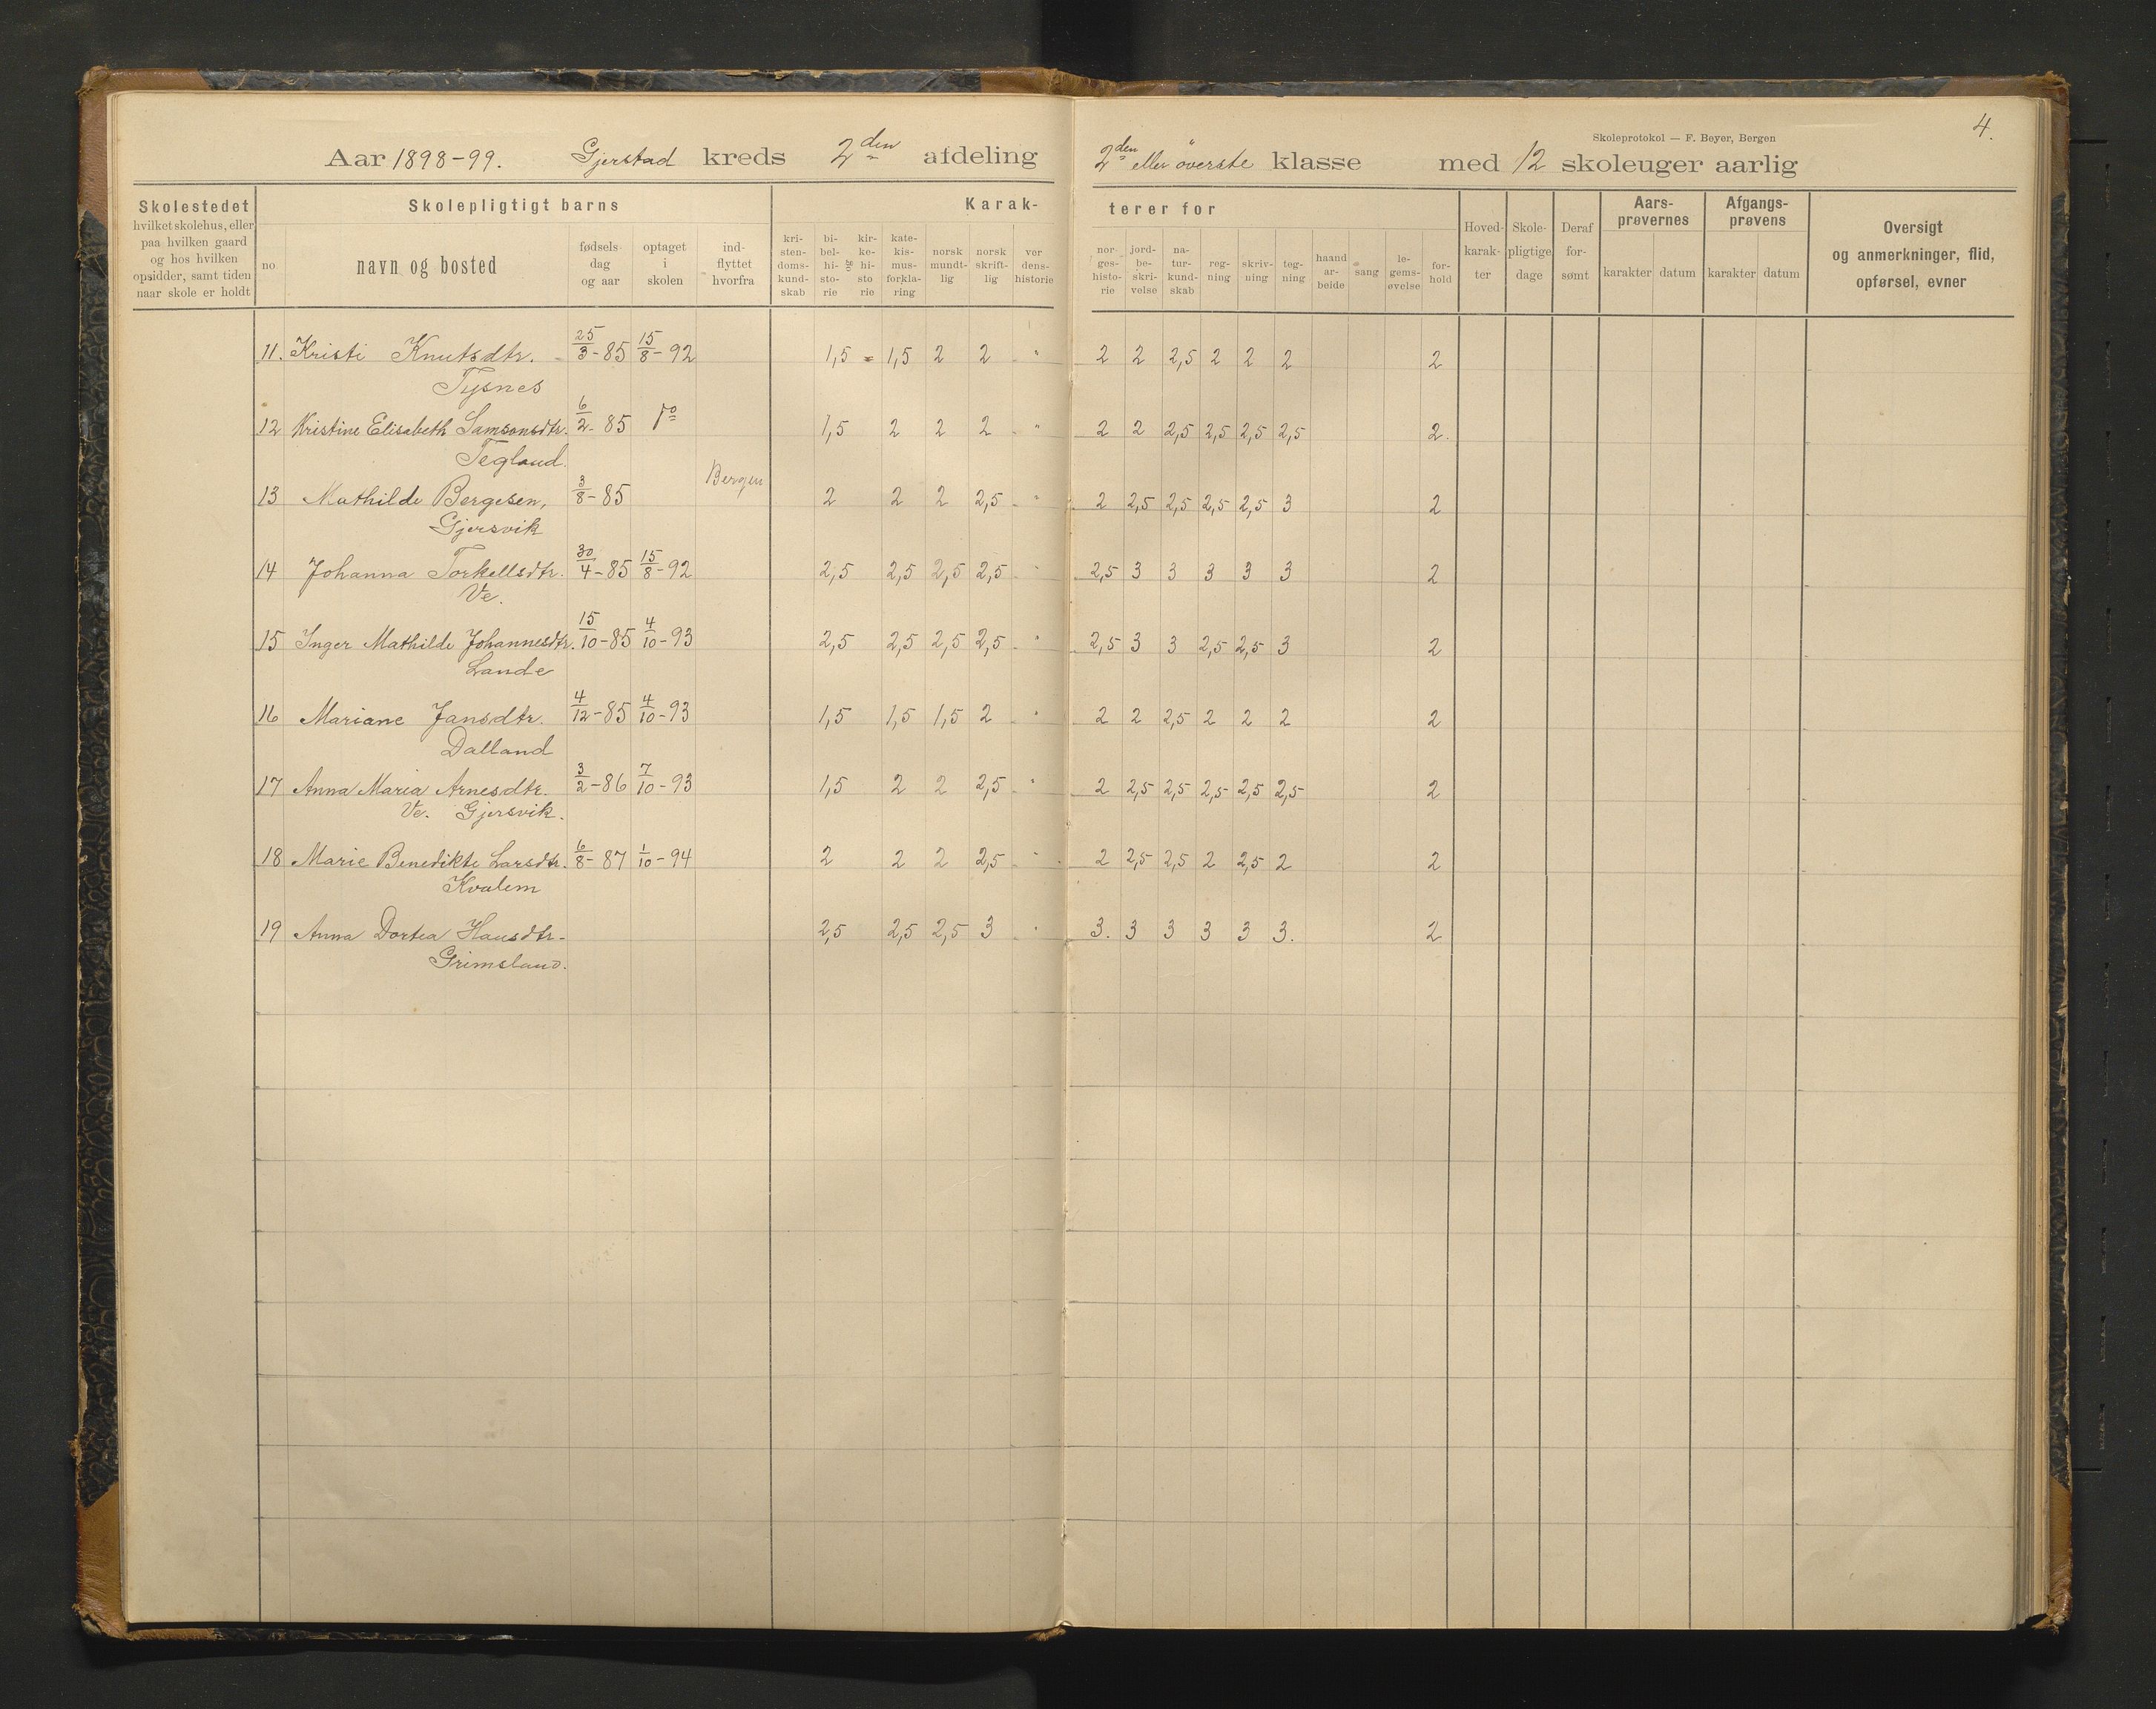 4.
Skoleprotokol — F. Beyer, Bergen
Aar 1898-99. Gjerstad kreds 2den afdeling 2den eller överste klasse med 12 skoleuger aarlig
Skolestedet
hvilket skolehus, eller
paa hvilken gaard
og hos hvilken
opsidder, samt tiden
naar skole er holdt
Skolepligtigt barns
no
navn og bosted
fødsels-
dag
og aar
optaget
i
skolen
ind-
flyttet
hvorfra
Karak-
terer for
kri-
sten-
doms-
kund-
skab
bi-
bel-
hi-
sto-
rie
og
kir-
ke-
hi-
sto
rie
kate-
kis-
mus-
forkla-
ring
norsk
mundt-
lig
norsk
skrift-
lig
ver
dens-
historie
nor-
ges-
histo-
rie
jord-
be-
skri-
velse
na-
tur-
kund-
skab
reg-
ning
skriv-
ning
teg-
ning
haand
ar-
beide
sang
le-
gems-
øvelse
for-
hold
Hoved-
karak-
ter
Skole-
pligtige
dage
Deraf
for-
sømt
Aars-
prøvernes
karakter datum
Afgangs-
prøvens
karakter datum
Oversigt
og anmerkninger, flid,
opførsel, evner
11. Kristi Knutsdtr. 25/3-85 15/8-92 1,5 " 1,5 2 2 " 2 2 2,5 2 2 2 2
Tysnes
12 Kristine Elisabeth Samsonsdtr. 6/2-85 1,5 2 2 2 " 2 2 2,5 2,5 2,5 2,5 2.
Tegland.
13 Mathilde Bergesen, 3/8-85 Bergen 2 2 2 2,5 " 2 2,5 2,5 2,5 2,5 3 2
Gjersvik
14 Johanna Torkellsdtr. 30/4-85 15/8-92 2,5 2,5 2,5 2,5 " 2,5 3 3 3 3 3 2
Ve.
15 Inger Mathilde Johannesdtr. 15/10-85 4/10-93 2,5 2,5 2,5 2,5 " 2,5 3 3 2,5 2,5 3 2
Lande
16 Mariane Jansdtr. 4/12-85 4/10-93 1,5 1,5 1,5 2 " 2 2 2,5 2 2 2 2
Dalland
17 Anna Maria Arnesdtr. 3/2-86 7/10-93 1,5 2 2 2,5 " 2 2,5 2,5 2,5 2,5 2,5 2
Ve. Gjersvik.
18 Marie Benedikte Larsdtr. 6/8-87 1/10-94 2 2 2 2,5 " 2 2,5 2,5 2 2,5 2 2
Kvalem
19 Anna Dortea Hansdtr. 2,5 2,5 2,5 3 " 3. 3 3 3 3 3. 2
Grimsland.